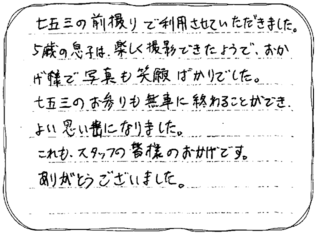 七五三の前撮りで利用させていただきました。
5歳の息子は、楽しく撮影できたようで、おか
げ様で写真も笑顔ばかりでした。
七五三のお参りも無事に終わることができ、
よい思い出になりました。
これも、スタッフの皆様のおかげです。
ありがとうございました。